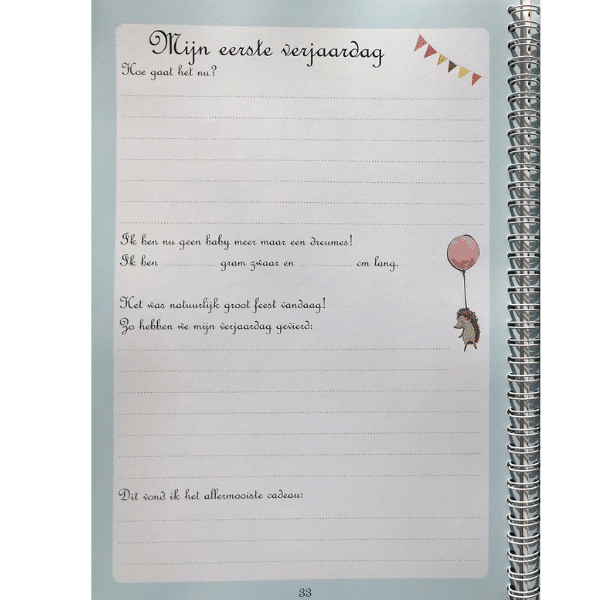 Mijn eerste verjaardag
Hoe gaat het nu?
Ik ben nu geen baby meer maar een dreumes!
Ik ben ............... gram zwaar en ............... cm lang.
Het was natuurlijk groot feest vandaag!
Zo hebben we mijn verjaardag gevierd:
Dit vond ik het allermooiste cadeau:
33